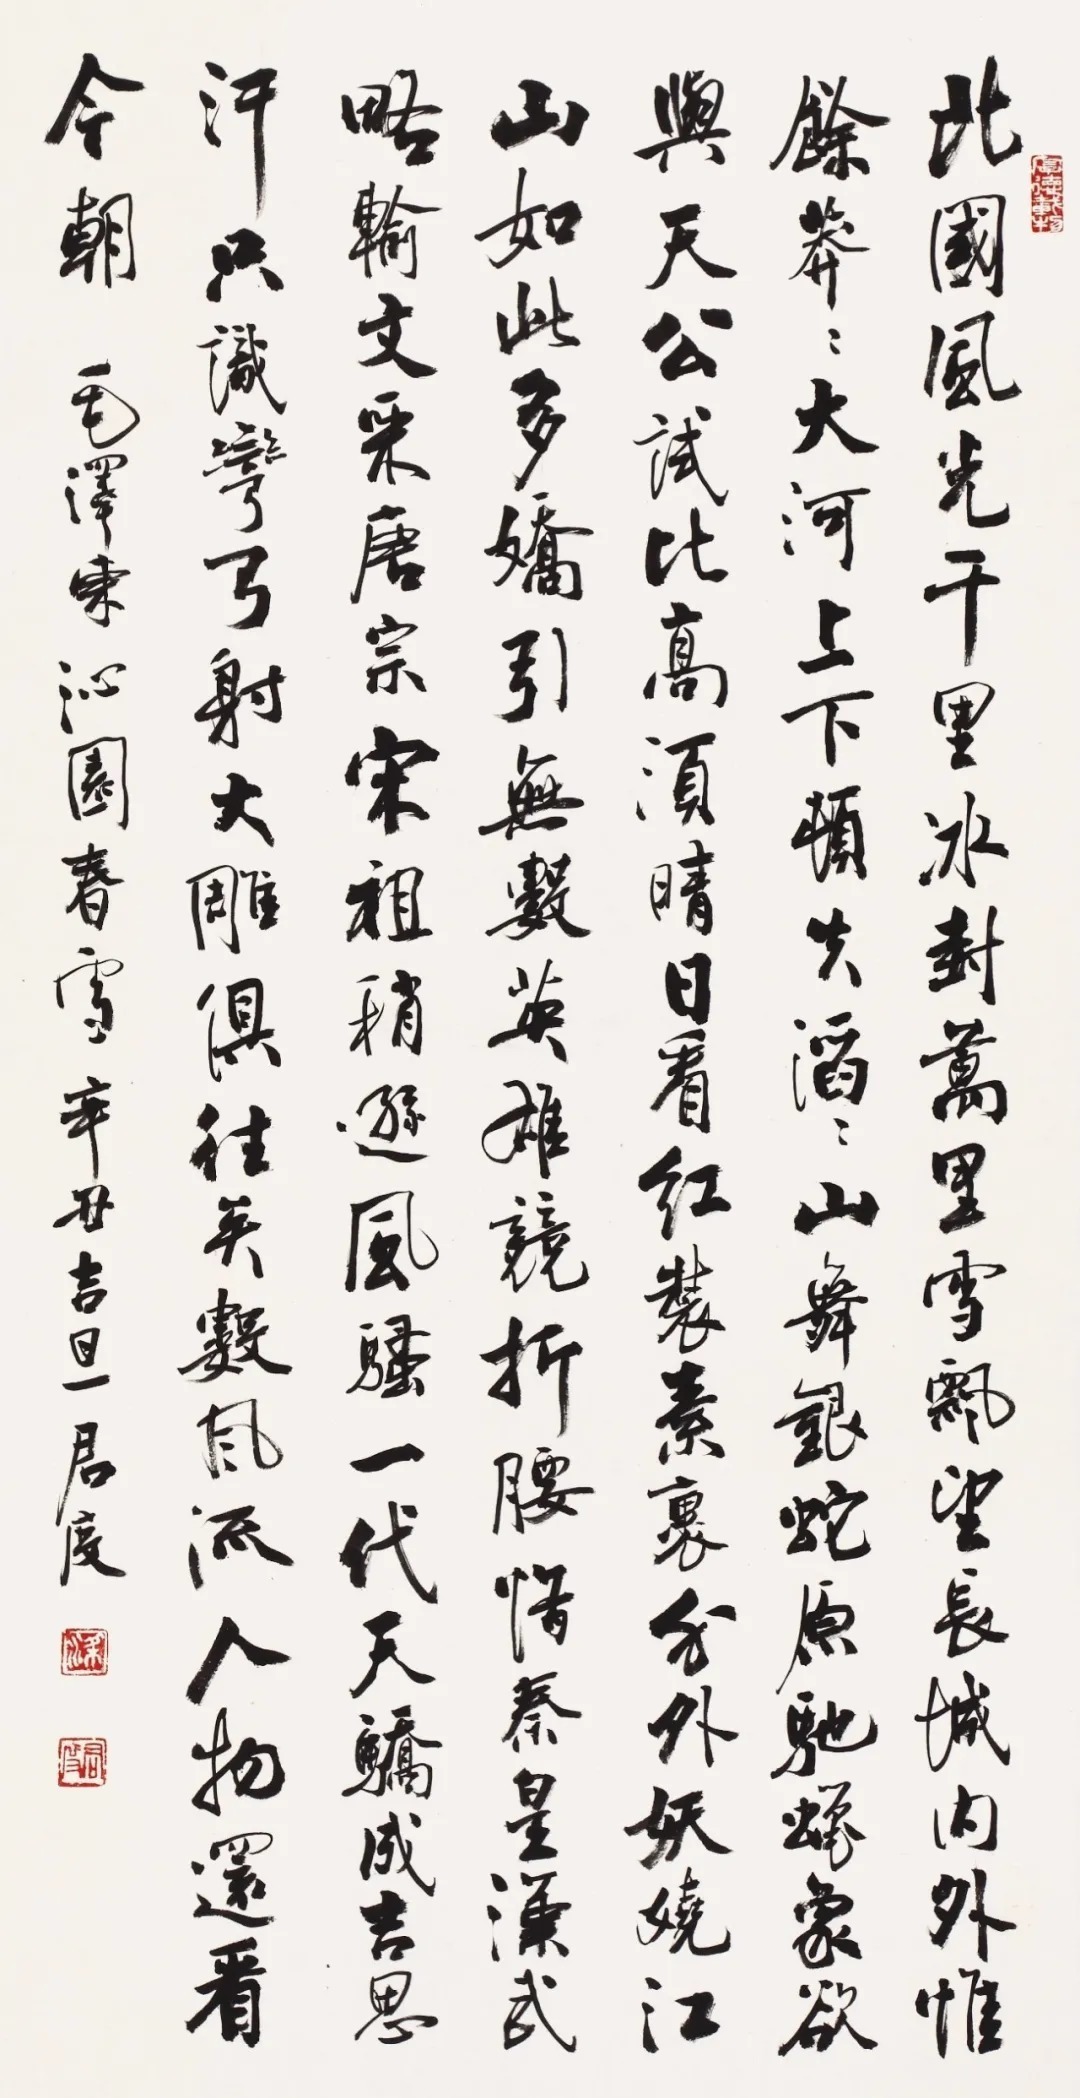 北國風光千里冰封萬里雪飄望長城內外惟
餘莽〻大河上下頓失滔〻山舞銀蛇原馳蠟象欲
與天公試比高須晴日看紅裝素裹分外妖嬈江
山如此多嬌引無數英雄競折腰惜秦皇漢武
略輸文采唐宗宋祖稍遜風騷一代天驕成吉思
汗只識彎弓射大雕俱往矣數風流人物還看
今朝 毛澤東沁園春雪 辛丑吉旦 君度
厚德載物